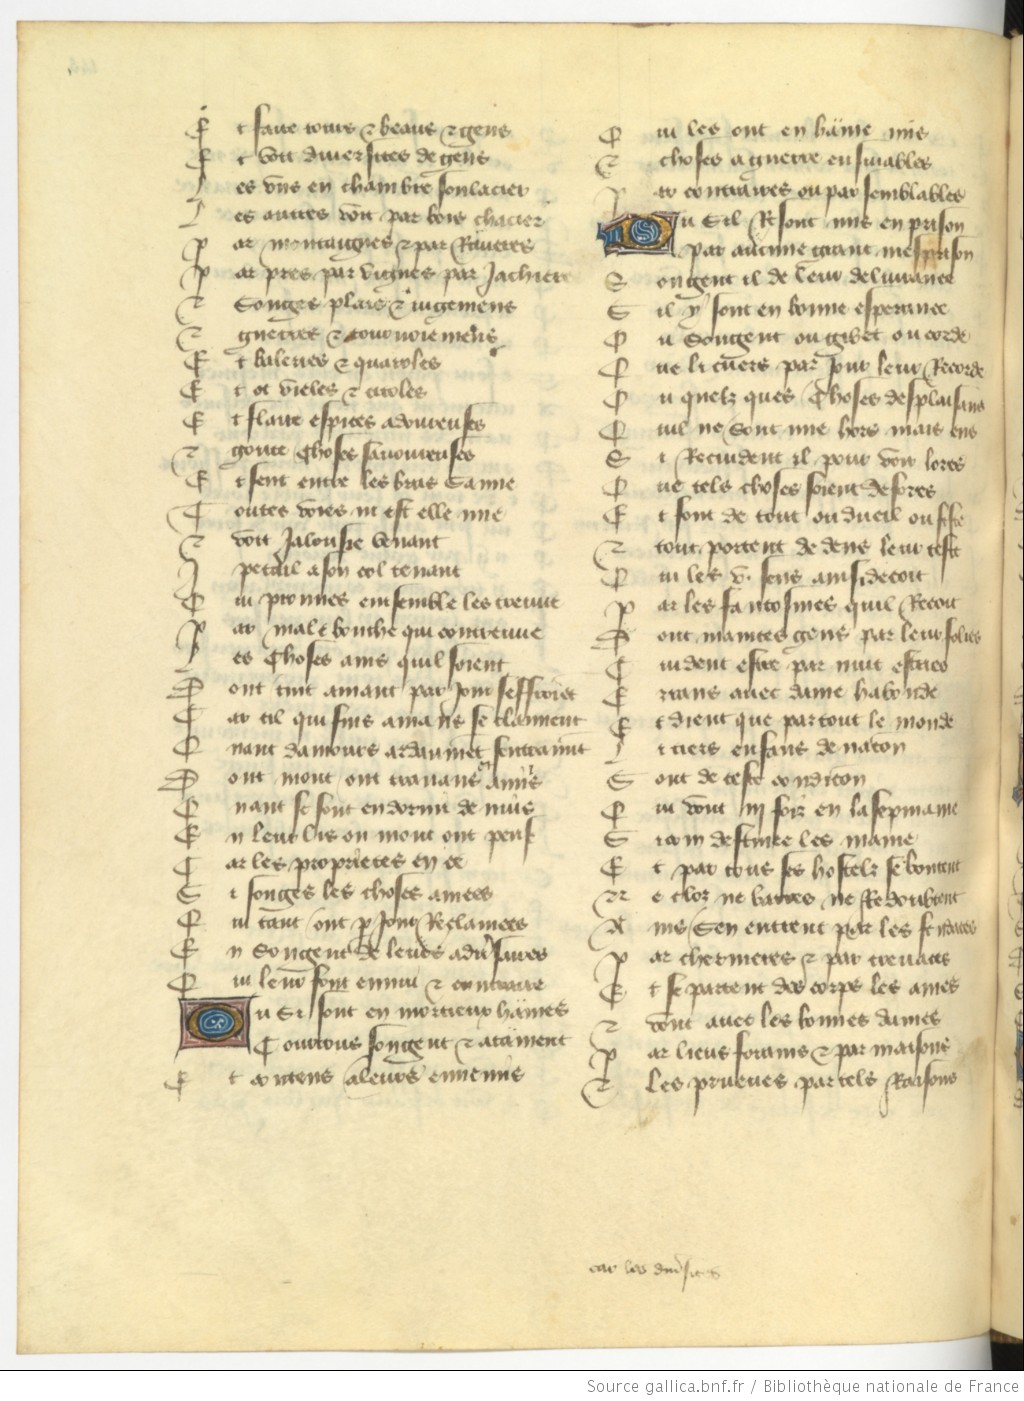 E t flaire roses & beaus & gens
E t voit diversites de gens
L es uns en chambre soulacier
L es autres vont par bois chacier
P ar montaignes & par Rivieres
P ar pres par vignes par Jachieres
E Songes plais & iugemens
E guerres & tournoiemens
E t baleries & quaroles
E t ot vieles & citoles
E t flaire espices adoureuses
E gouste Choses savoureuses
E t sent entre les bras samie
T outes voies ni est elle mie
E voit Jalousie venant
U pestail a son col tenant
Q ui prouves ensemble les treuve
P ar male bouche qui contreuve
L es Choses ains quil soient
D ont tuit amant par jour seffroient
C ar cil qui fins amans se claiment
Q uant damours ardaument sentraiment
D ont mont ont travaus & annis
Q uant se sont endormi de nuis
E n leur lis ou mont ont pense
C ar les proprietes en ce
S i songes les choses amees
Q ui tant ont p jour Reclamees
E n Songent de leurs adversaires
Q ui leur font ennui & contraire
O u Si sont en morteux haines
C ourrous songent & ataines
E t contens a leurs ennemis
Q ui les ont en haine mis
E choses a guerre ensivables
P ar contraires ou par semblables
O u Sil Rsont mis en prison
par aucune grant mesprison
S ongent il de leur delivrance
S il y sont en bonne esperance
O u Songent ou gibet ou corde
Q ue li cuers par jour leur Recorde
O u quelz ques Choses desplaisans
Q uil ne Sont mie hors mais ens
S i Recuident il pour voir lores
Q ue tels choses soient defores
E t font de tout ou dueil ou feste
E tout portent de dens leur teste
Q ui les v. sens ainsi decoit
P ar les fantosmes quil Recoit
D ont maintes gens par leur folies
C uident estre par nuit estries
E rrans avec dame habonde
E t dient que par tout le monde
L i tiers enfans de nacion
S ont de ceste condicion
Q ui vont iij foiz en la sepmaine
S icom destinee les maine
E t par tous ses hostelz se boutent
N e clez ne barres ne Redoubtent
A ins Sen entrent par les fendaces
P ar chetieres & par crevaces
E t se partent des corps les ames
E vont avec les bonnes dames
P ar lieus forains & par maisons
E Les preuves par tels Raisons
car les diversites
Source gallica.bnf.fr / Bibliothèque nationale de France